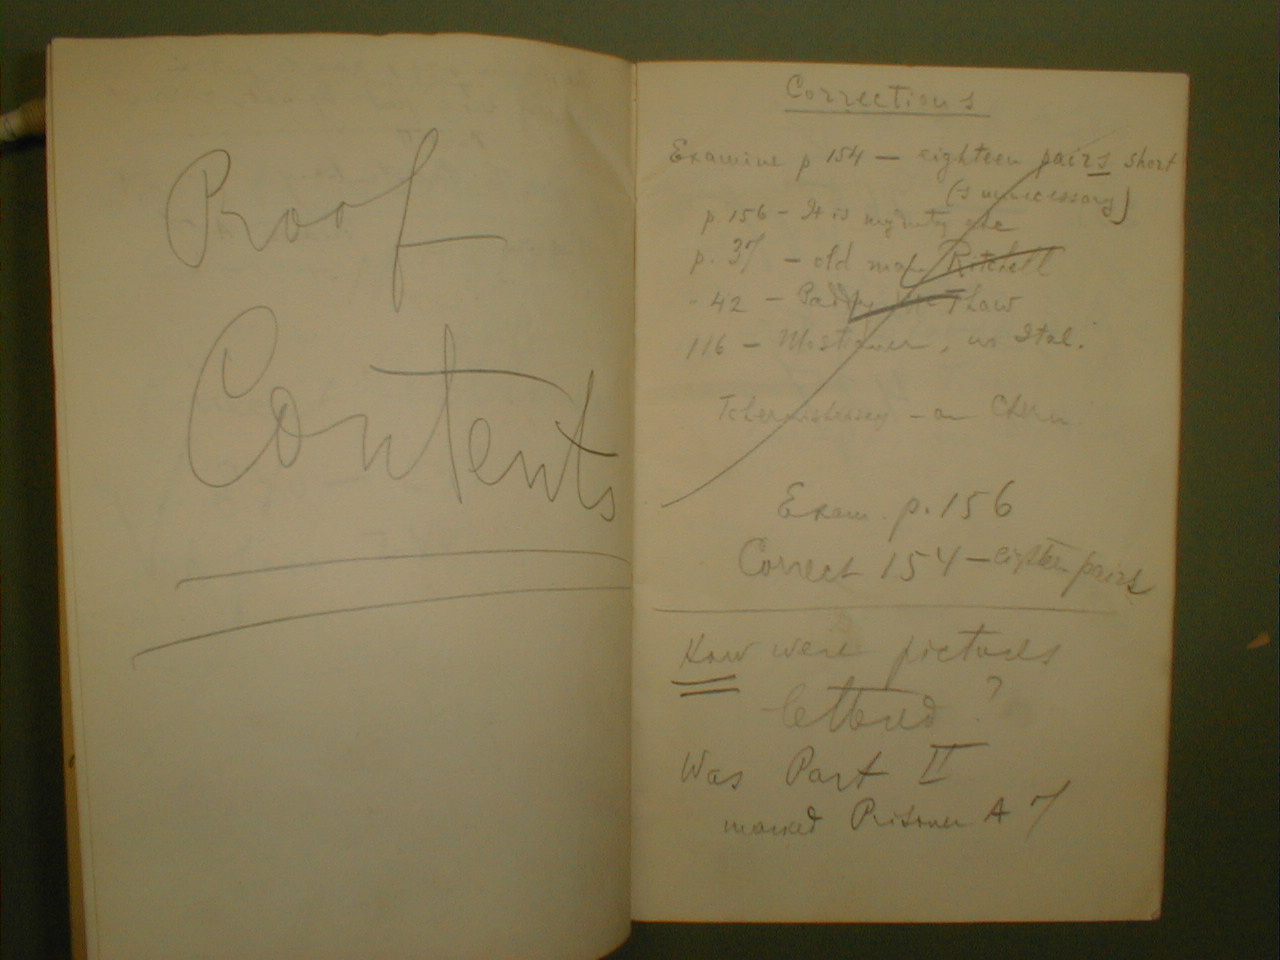 Proof
Contents
Corrections
Examine p 154 — eighteen pairs short
(s unnecessary)
p. 156 — It is
p. 37 — old man Ritchell
42 — Thaw
116 — in Ital.
— an
Exam. p. 156
Correct 154 — eighteen pairs
How were pictures
lettered ?
Was Part II
marked Prisoner A